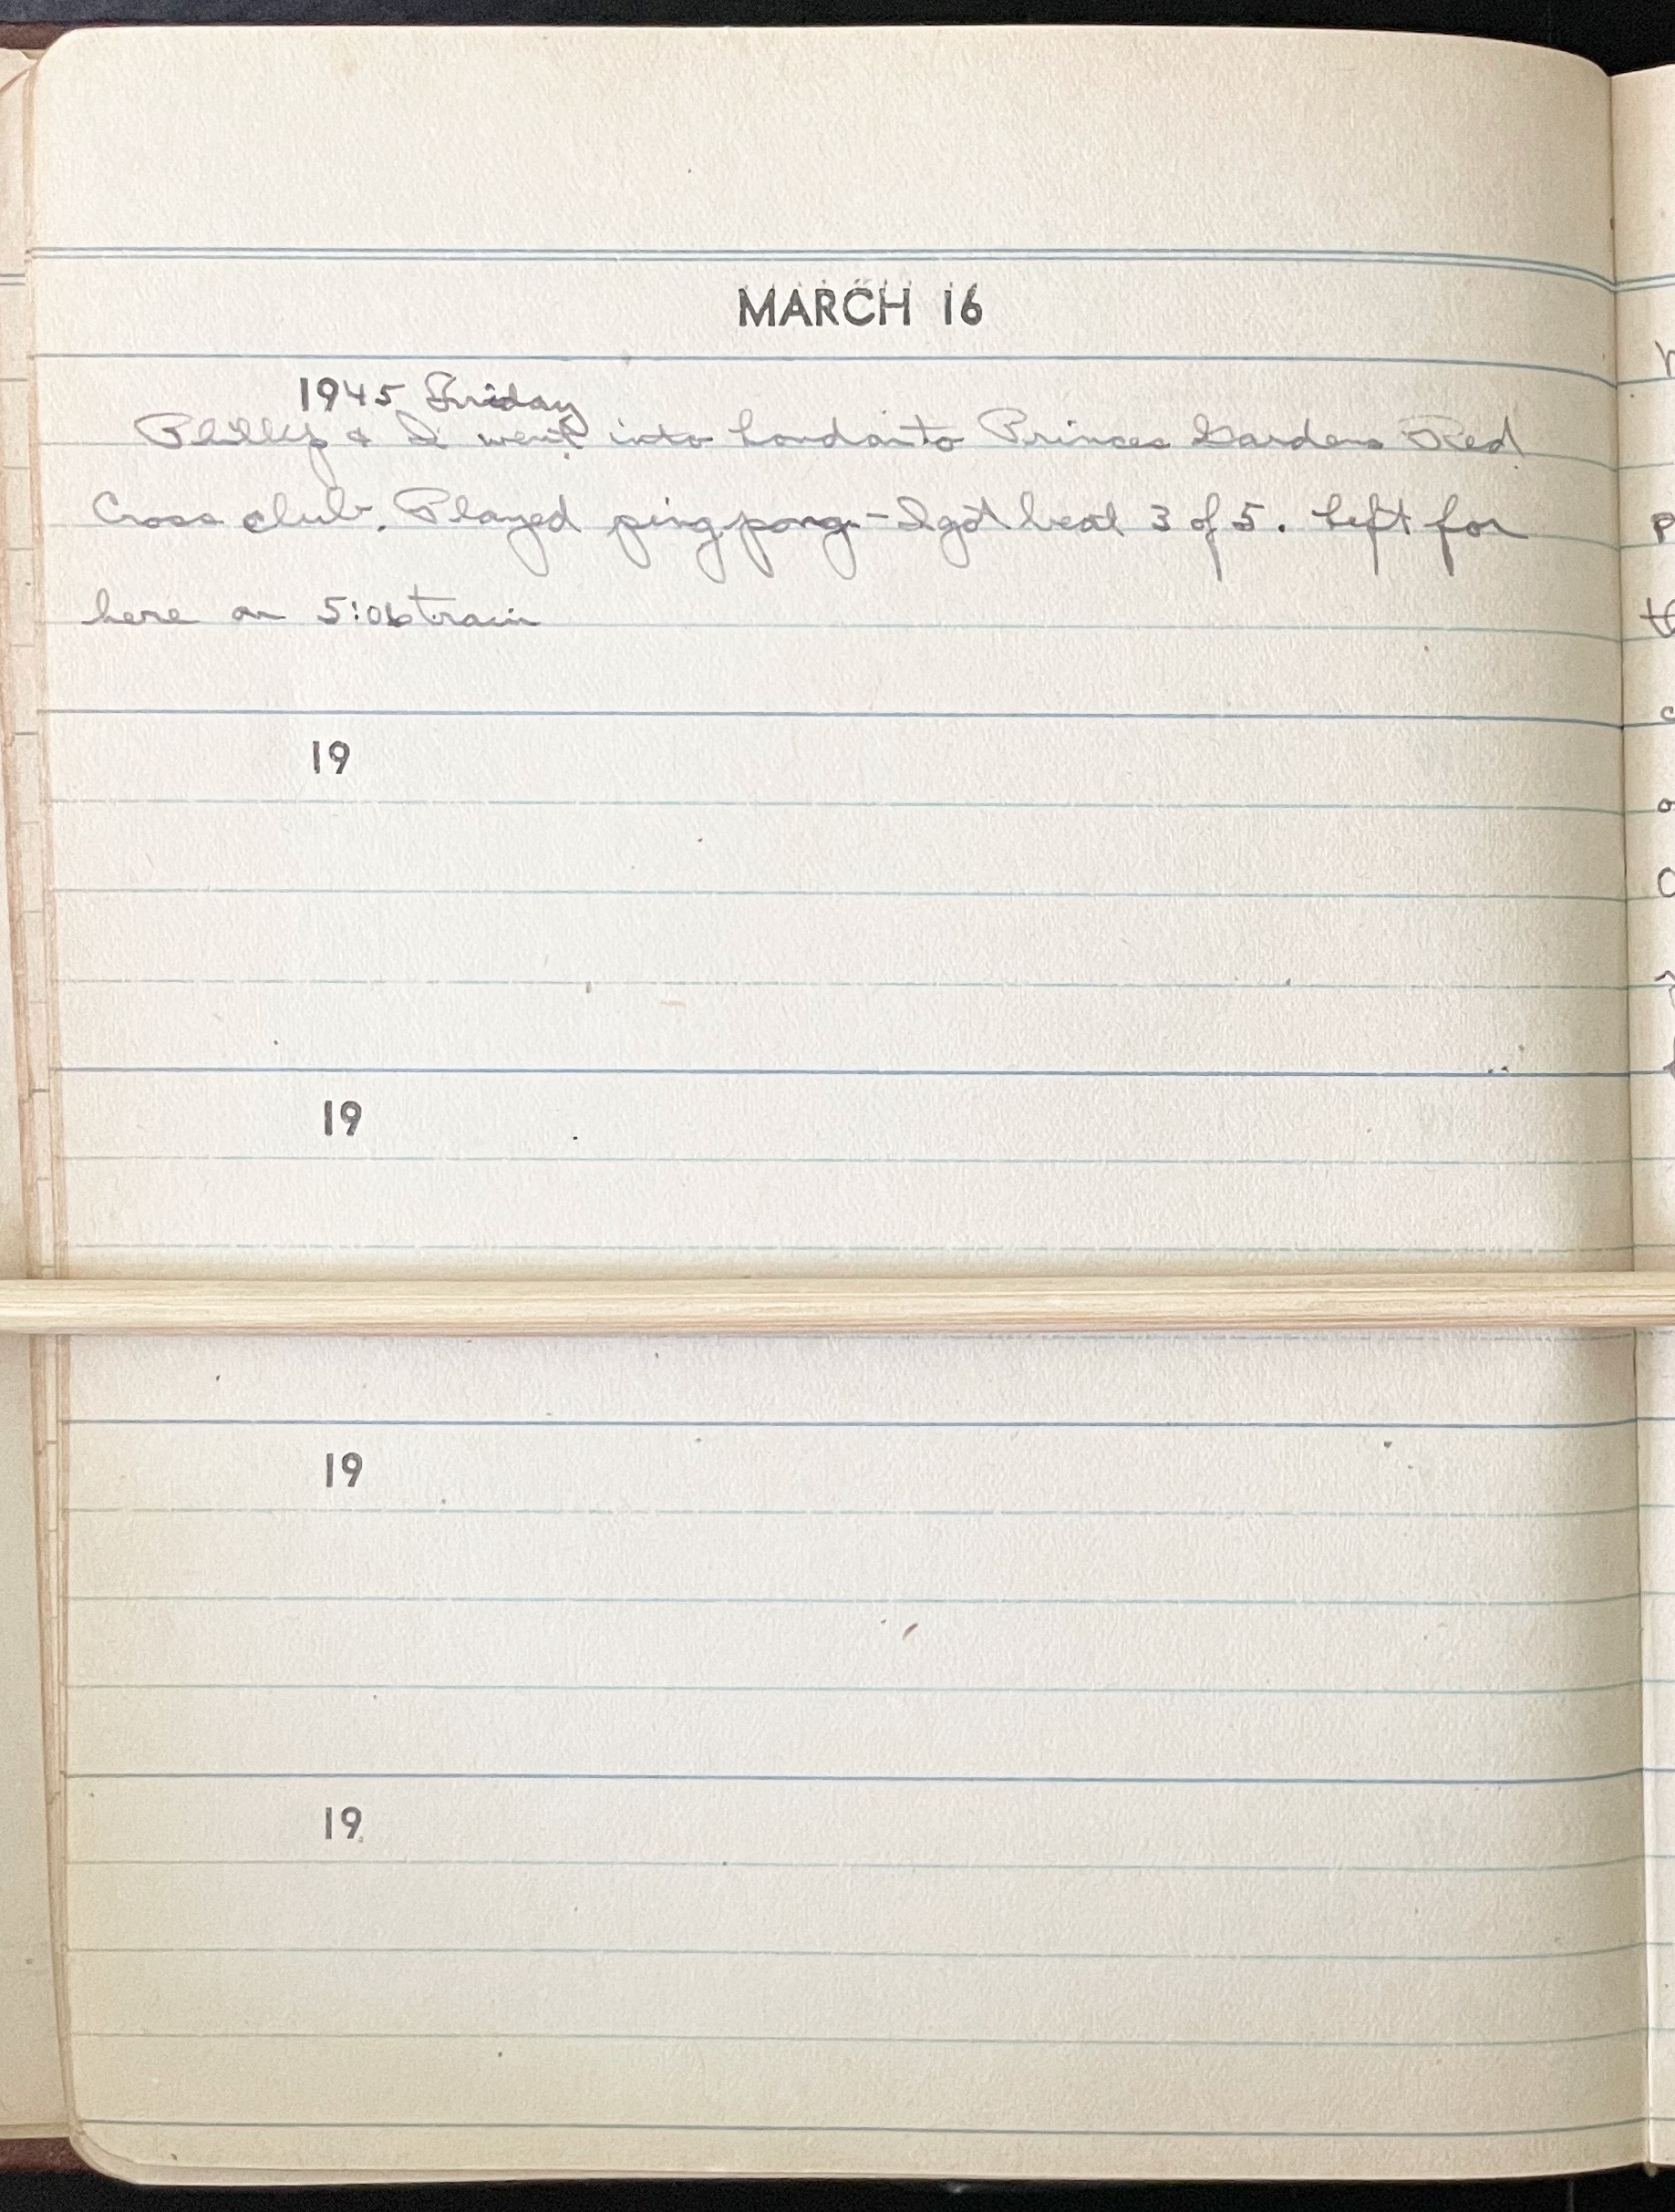 MARCH 16
1945 Friday
Philly & I went into London to Princes Gardens Red
Cross club. Played ping pong - I got beat 3 of 5. Left for
here on 5:06 train
19
19
19
19